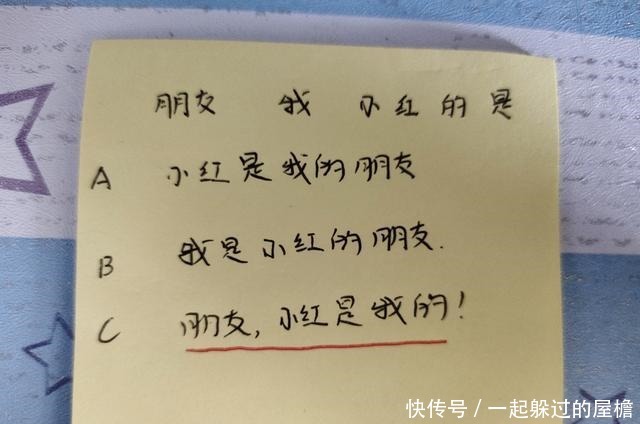 朋友 我 小红 的 是
A 小红是我的朋友
B 我是小红的朋友.
C 朋友,小红是我的!
快传号/一起躲过的屋檐